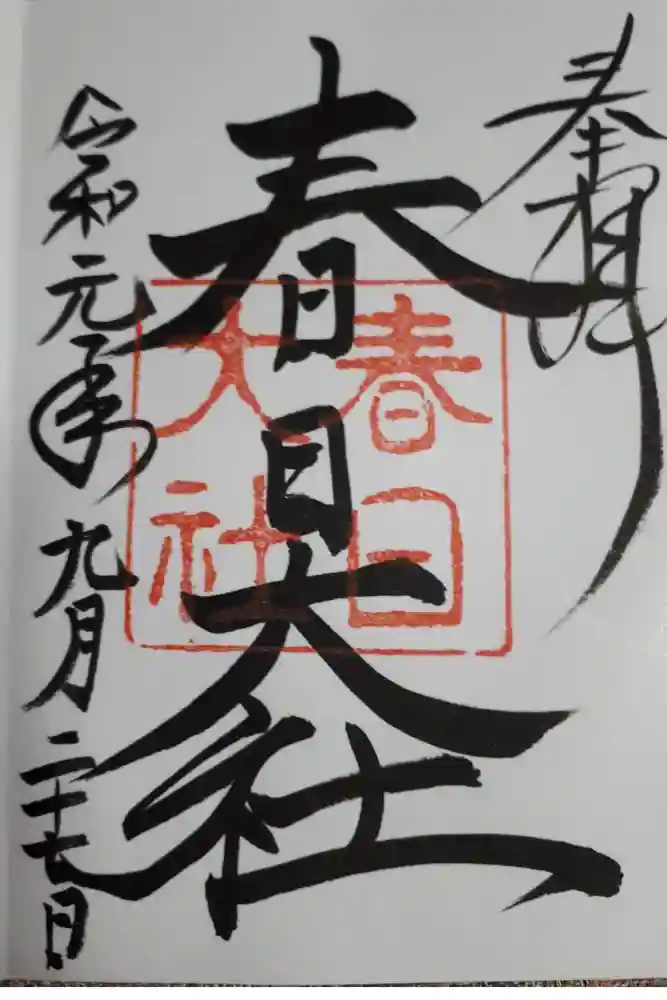 奉拝
春日大社
春日
大社
令和元年九月二十七日